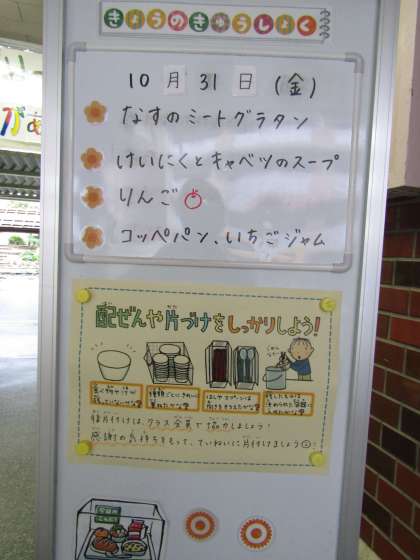 きょうのきゅうしょく
10月31日(金)
なすのミートグラタン
けいにくとキャベツのスープ
りんご
コッペパン、いちごジャム
配ぜんや片づけをしっかりしよう!
後片付けは、クラス全員で協力しましょう!
感謝の気持ちをもって、ていねいに片付けましょう